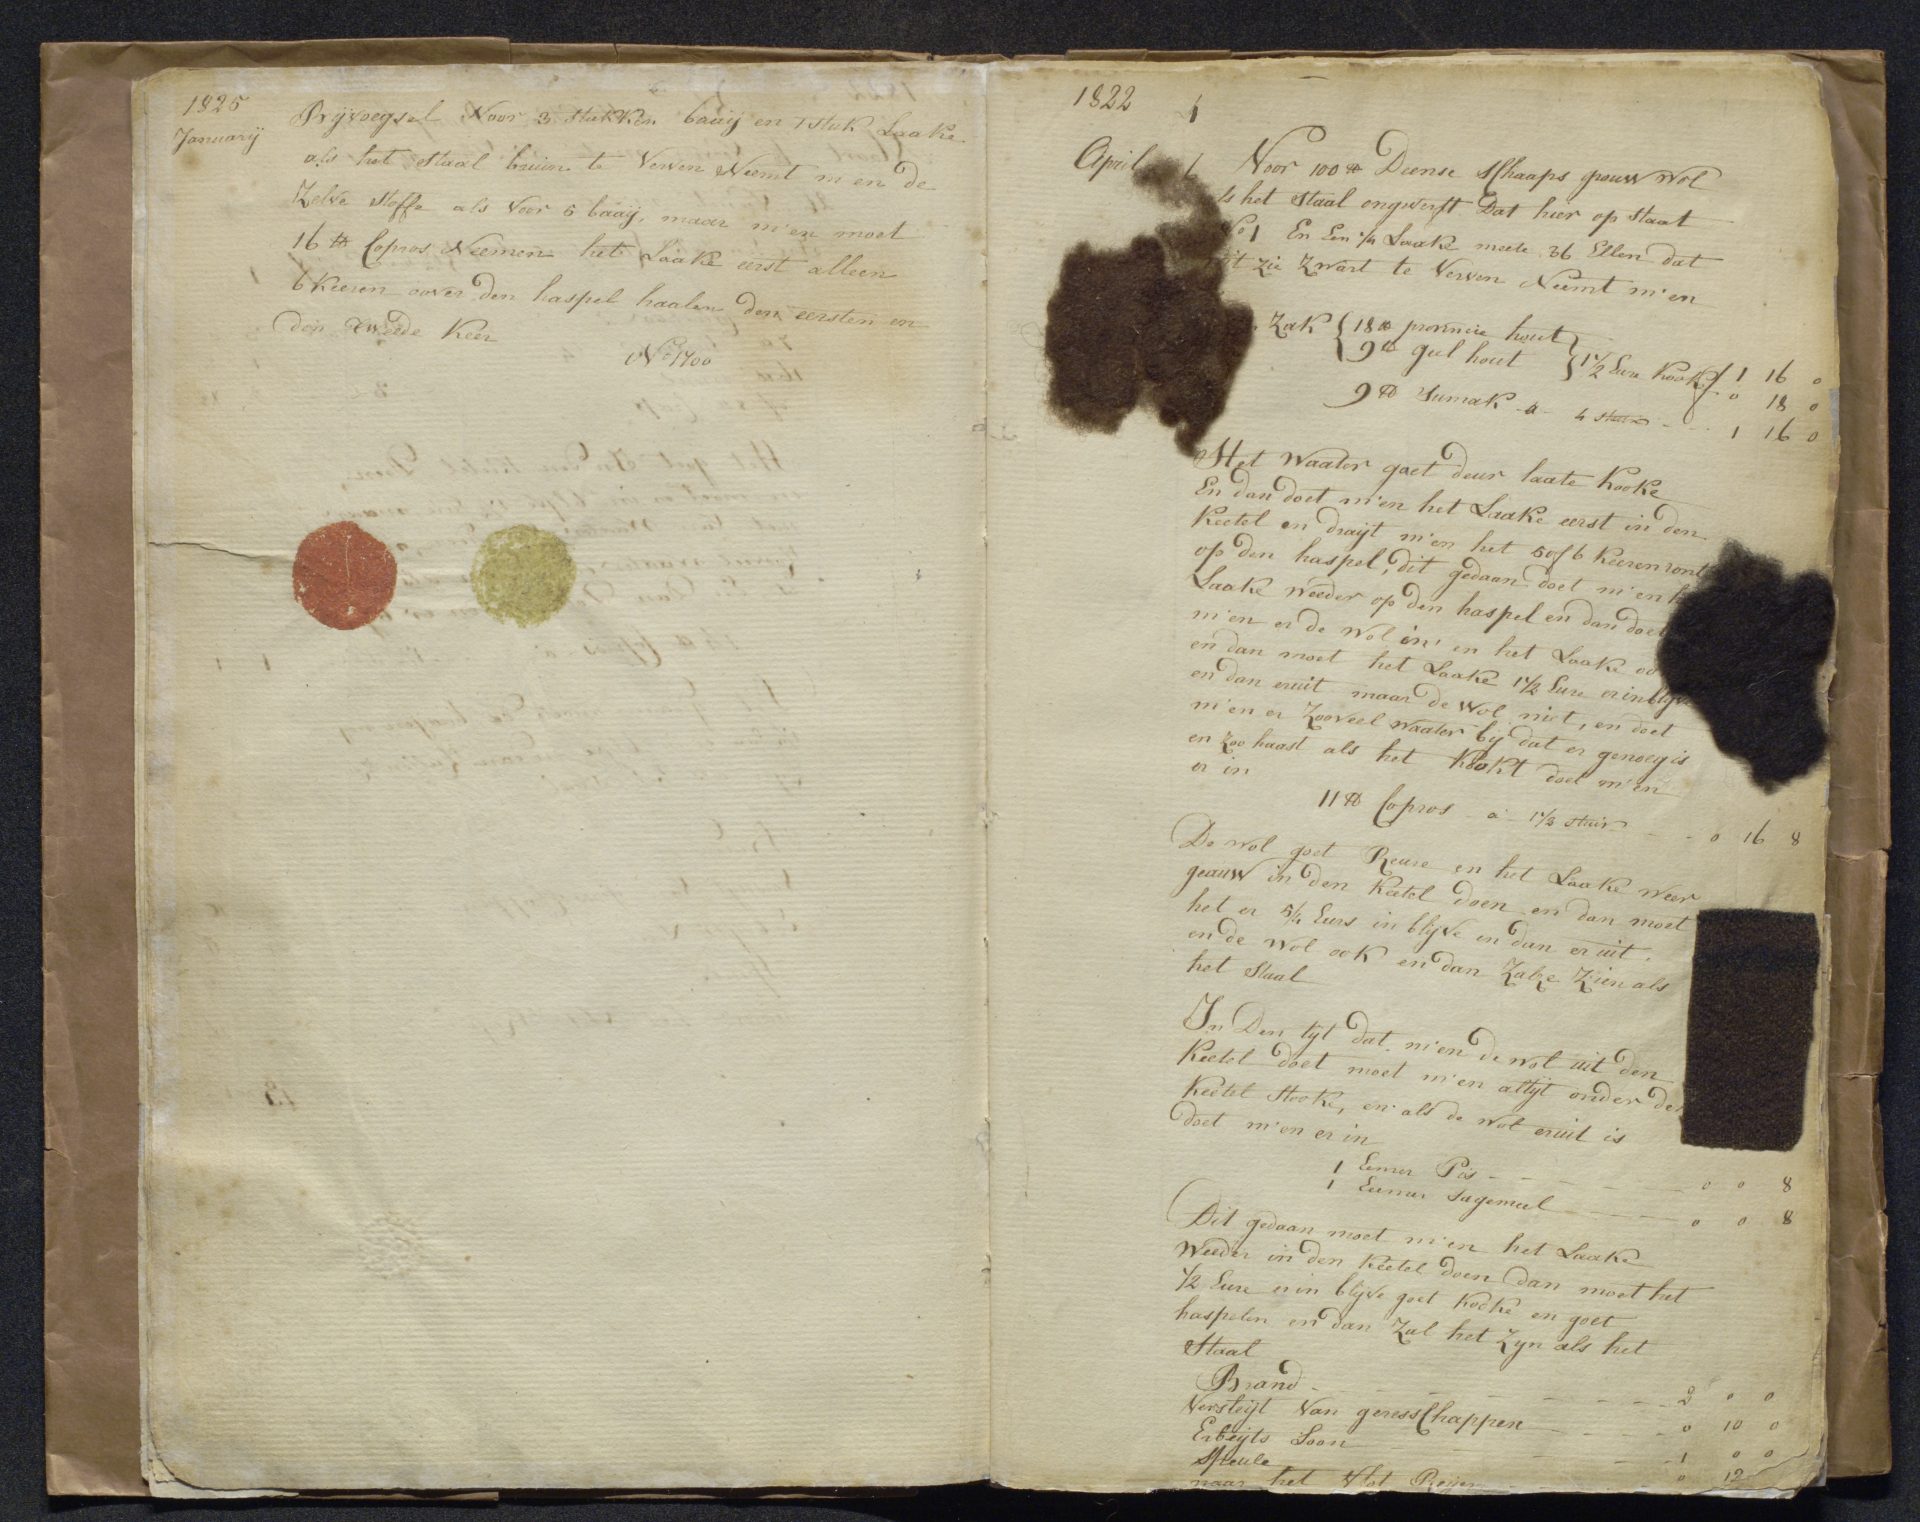 1825
Januarij
Bijvoegsel Voor 3 stukken baaij en 1 stuk Laake
als het staal bruin te Verven Neemt m'en de
Zelve stoffe als voor 5 baaij, maar m'en moet
16 ℔ Copros Neemen het Laake eerst alleen
6 Keeren oover den haspel haalen den eersten en
den tweede Keer
No 1700
1822
April
Voor 100 ℔ Deense Schaaps grouw wol
als het staal ongeverft Dat hier op staat
No 1 En Een 1/4 Laake meete 36 Ellen dat
Zie Zwart te Verven Neemt m'en
Zak { 18 ℔ provincie hout
9 ℔ geel hout } 1 1/2 Eure Kooke 1 16 0
0 18 0
9 ℔ Sumak a 4 stuiv 1 16 0
Het Waater goet deur laate Kooke
En dan doet m'en het Laake eerst in den
Keetel en draijt m'en het 5 of 6 Keeren ront
op den haspel, dit gedaan doet m'en
Laake weeder op den haspel en dan doet
m'en er de wol in, en het Laake
en dan moet het Laake 1 1/2 Eure erin blijve
en dan eruit maar de wol niet, en doet
m'en er Zooveel Waater bij dat er genoeg is
en Zoo haast als het Kookt doet m'en
er in
11 ℔ Copros a 1 1/2 stuiv 0 16 8
De wol goet Reure en het Laake weer
geauw in den Keetel doen en dan moet
het er 5/4 Eurs in blijve en dan er uit,
en de Wol ook en dan Zalze Zien als
het Staal
In Den tijt dat m'en de wol uit den
Keetel doet moet m'en altijt onder den
Keetel Stooke, en als de wol eruit is
doet m'en er in
1 Eemer Pis 0 0 8
1 Eemer Sagemeel 0 0 8
Dit gedaan moet m'en het Laake
Weeder in den Keetel doen dan moet het
1/2 Eure erin blijve goet Kooke en goet
haspelen en dan Zal het Zijn als het
Staal
Brand 2 0 0
Versleijt Van geresschappen 0 10 0
Erbeijts Loon 1 0 0
Speule 0 12
naar het Vlot